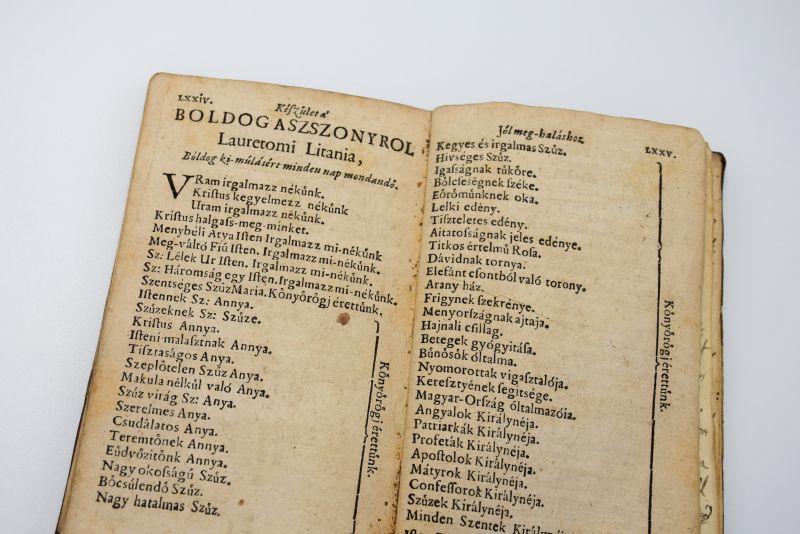 LXXIV.
Készület a'
BOLDOGASZSZONYROL
Lauretomi Litania,
Bóldog ki-múlásért minden nap mondandó.
VRam irgalmazz nékúnk.
Kristus kegyelmezz nékúnk
Uram irgalmazz nékúnk.
Kristus halgass-meg minket.
Menybéli Atya Isten Irgalmazz mi-nékúnk
Meg-váltó Fiú Isten. Irgalmazz mi-nékúnk.
Sz: Lélek Ur Isten. Irgalmazz mi-nékúnk.
Sz: Háromság egy Isten. Irgalmazz mi-nékúnk.
Szentseges SzúzMaria. Kőnyőrőgj érettúnk.
Istennek Sz: Annya.
Szúzeknek Sz: Szúze.
Kristus Annya.
Isteni malasztnak Annya.
Tisztaságos Anya.
Szeplőtelen Szúz Anya.
Makula nélkúl való Anya.
Szúz virág Sz: Anya.
Szerelmes Anya.
Csudálatos Anya.
Teremtőnek Annya.
Eúdvőzitőnk Annya.
Nagy okosságú Szúz.
Bőcsúlendő Szúz.
Nagy hatalmas Szúz.
Kőnyőrőgj érettúnk.
Jól meg-haláshoz
LXXV.
Kegyes és irgalmas Szúz.
Hivséges Szúz.
Igasságnak túkőre.
Bőlcseségnek széke.
Eőrőmúnknek oka.
Lelki edény.
Tiszteletes edény.
Aitatosságnak jeles edénye.
Titkos értelmű Rosa.
Dávidnak tornya.
Elefánt csontból való torony.
Arany ház.
Frigynek szekrénye.
Menyországnak ajtaja.
Hajnali csillag.
Betegek gyógyitása.
Búnősők óltalma.
Nyomorottak vigasztalója.
Keresztyének segitsége.
Magyar-Ország óltalmazója.
Angyalok Királynéja.
Patriarkák Királynéja.
Profeták Királynéja.
Apostolok Királynéja.
Mátyrok Királynéja.
Confessorok Királynéja.
Szúzek Királynéja.
Minden Szentek Királynéja.
Kőnyőrőgj érettúnk.